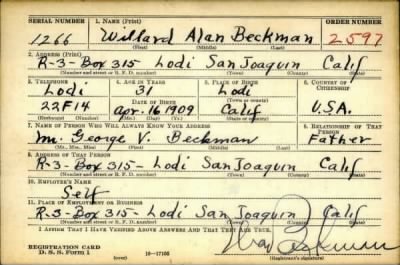 SERIAL NUMBER 1. NAME (Print) ORDER NUMBER
1266 Willard Alan Beckman 2597
(First) (Middle) (Last)
2. ADDRESS (Print)
R-3-Box 315- Lodi San Joaquin Calif
(Number and street or R. F. D. number) (Town) (County) (State)
3. TELEPHONE 4. AGE IN YEARS 5. PLACE OF BIRTH 6. COUNTRY OF CITIZENSHIP
Lodi 31 Lodi
DATE OF BIRTH (Town or county)
22F14 Apr. 16 1909 Calif U.S.A.
(Exchange) (Number) (Mo.) (Day) (Yr.) (State or country)
7. NAME OF PERSON WHO WILL ALWAYS KNOW YOUR ADDRESS 8. RELATIONSHIP OF THAT PERSON
Mr. George V. Beckman Father
(Mr., Mrs., Miss) (First) (Middle) (Last)
9. ADDRESS OF THAT PERSON
R-3-Box 315- Lodi San Joaquin Calif
(Number and street or R. F. D. number) (Town) (County) (State)
10. EMPLOYER'S NAME
Self
11. PLACE OF EMPLOYMENT OR BUSINESS
R-3-Box 315- Lodi San Joaquin Calif
(Number and street or R. F. D. number) (Town) (County) (State)
I AFFIRM THAT I HAVE VERIFIED ABOVE ANSWERS AND THAT THEY ARE TRUE.
REGISTRATION CARD
D. S. S. Form 1 (over) 16-17105 (Registrant's signature)